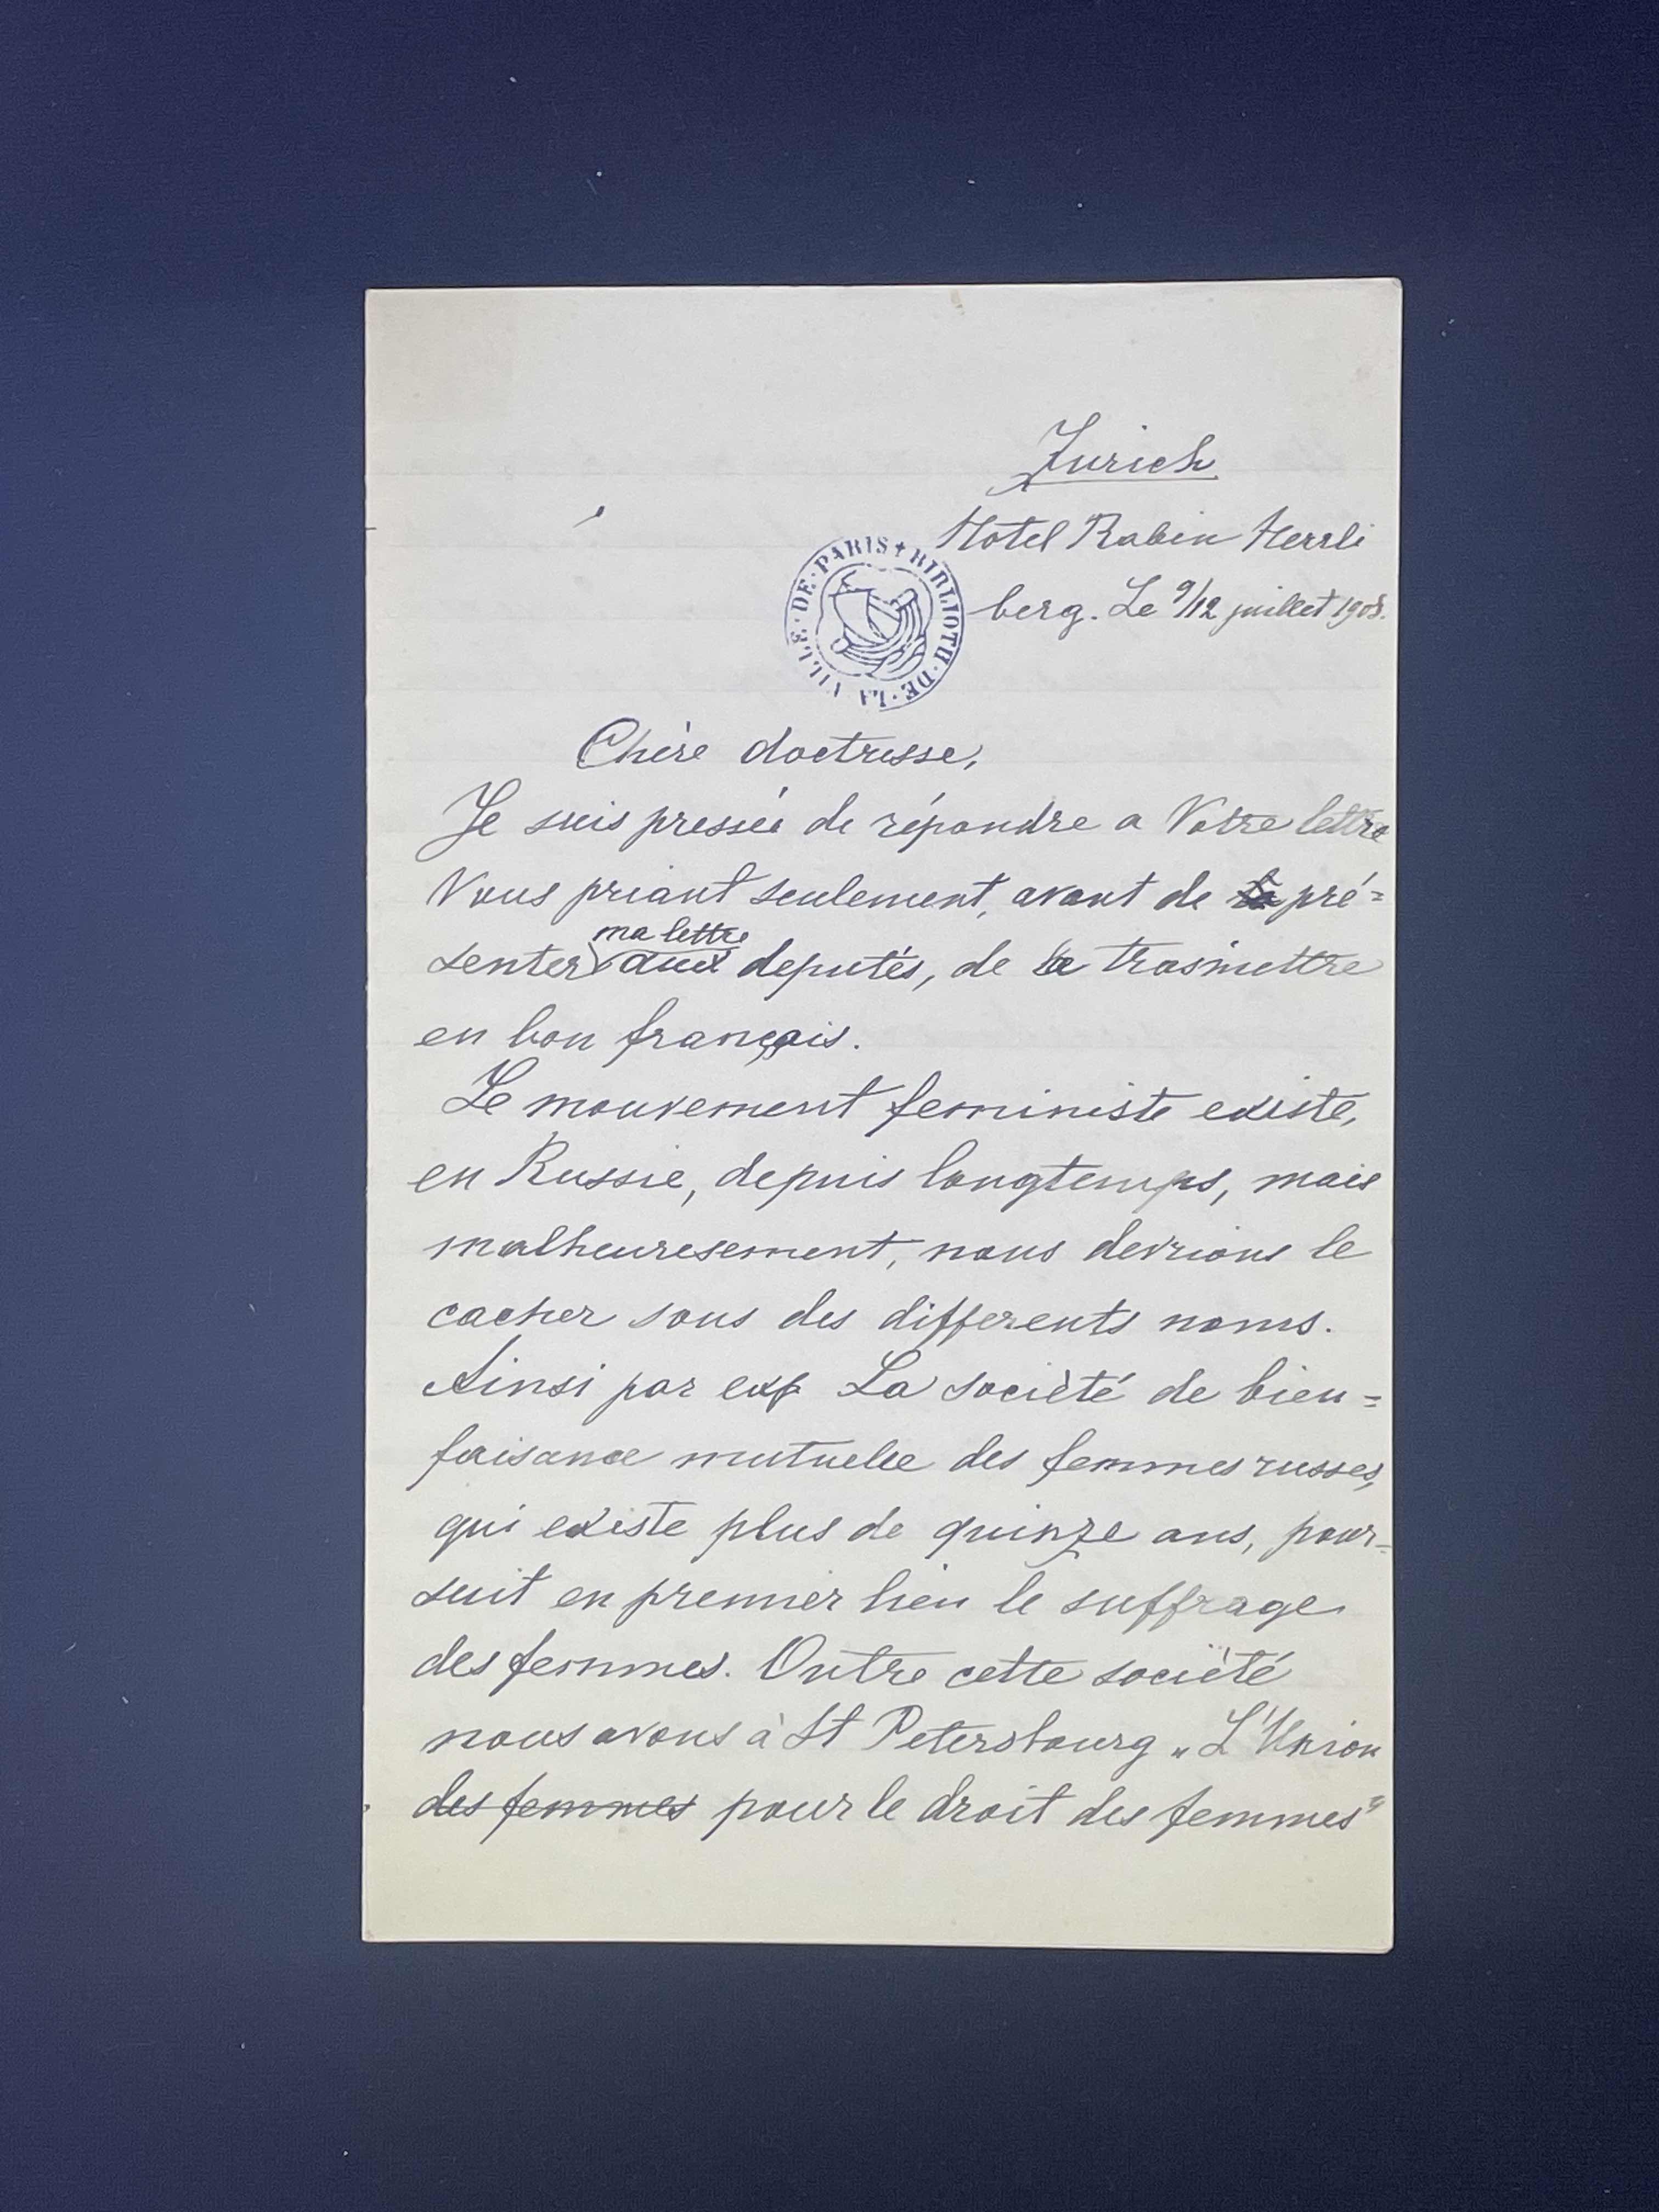 Zurich
Hotel Rabin Herrli
berg. Le 9/12 juillet 1908.
VILLE · DE · PARIS + BIBLIOTH · DE · LA
Chère doctresse,
Je suis pressée de répondre a Votre lettre
Vous priant seulement, avant de la pré=
ma lettre
senter aux deputés, de la trasmettre
en bon français.
Le mouvement feministe existe,
en Russie, depuis longtemps, mais
malheuresement, nous devrions le
cacher sous des differents noms.
Ainsi par exp La société de bien=
faisance mutuelle des femmes russes,
qui existe plus de quinze ans, pour=
suit en premier lieu le suffrage
des femmes. Outre cette société
nous avons à St Petersbourg „L'Union
des femmes pour le droit des femmes"